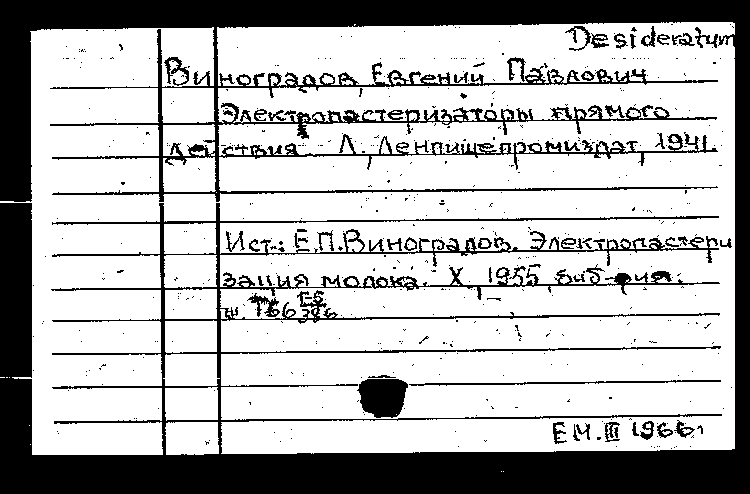 Desideratum
Виноградов, Евгений Павлович
Электропастеризаторы прямого
действия Л., Ленпищепромиздат, 1941.
Ист.: Е.П.Виноградов. Электропастери
зация молока. Х., 1955,
Е.М. III 1966